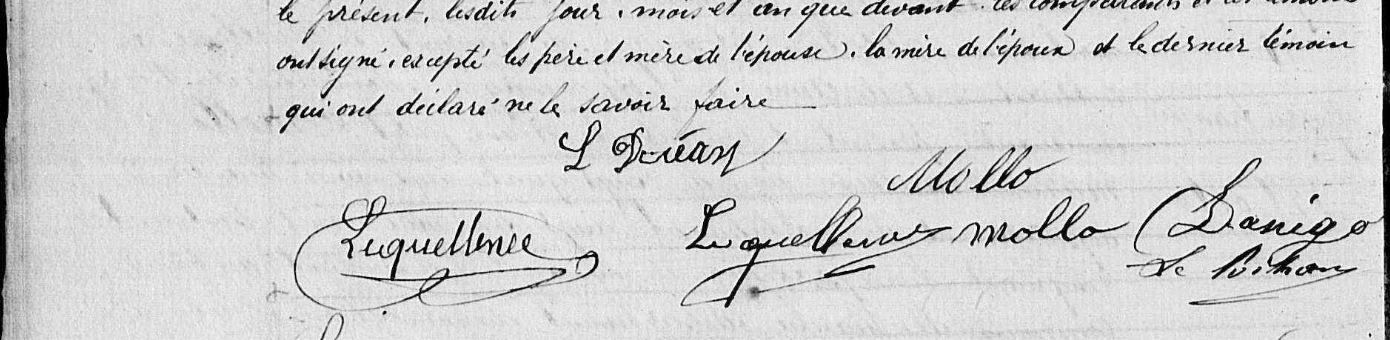 le présent, lesdits jour, mois et an que devant. les comparants et les témoins
ont signé, excepté les père et mère de l'épouse, la mère de l'époux et le dernier témoin
qui ont déclaré ne le savoir faire
L Douéan
Mollo
Lequellenec Lequellenec Mollo Danigo
Le